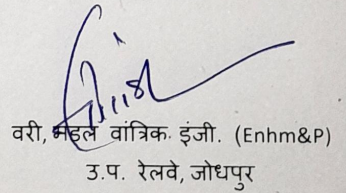 वरी, मंडल वांत्रिक. इंजी. (Enhm&P)
उ.प. रेलवे, जोधपुर